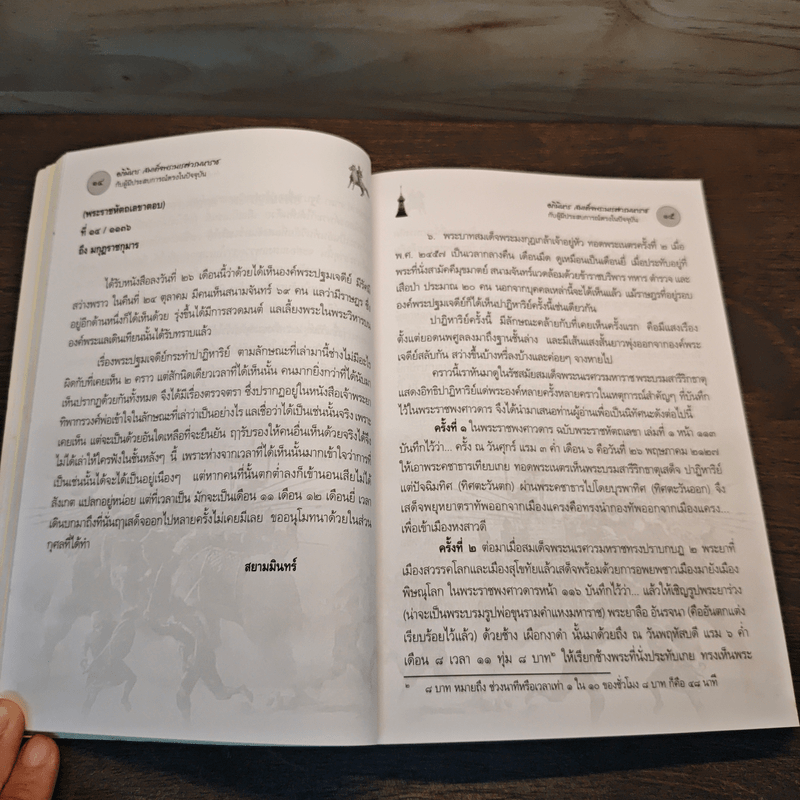 ๑๔
อภินิหาร สมเด็จพระนเรศวรมหาราช
กับผู้มีประสบการณ์ตรงในปัจจุบัน
(พระราชหัตถเลขาตอบ)
ที่ ๑๔ / ๑๑๓๖
ถึง มกุฎราชกุมาร
ได้รับหนังสือลงวันที่ ๒๖ เดือนนี้ว่าด้วยได้เห็นองค์พระปฐมเจดีย์ มีรัศมี
สว่างพราว ในคืนที่ ๒๔ ตุลาคม มีคนเห็นสนามจันทร์ ๖๙ คน แลว่ามีราษฎร ซึ่ง
อยู่อีกด้านหนึ่งก็ได้เห็นด้วย รุ่งขึ้นได้มีการสวดมนต์ แลเลี้ยงพระในพระวิหาร
องค์พระแลเดินเทียนนั้นได้รับทราบแล้ว
เรื่องพระปฐมเจดีย์กระทำปาฏิหาริย์ ตามลักษณะที่เล่ามานี้ช่างไม่มี
ผิดกับที่เคยเห็น ๒ คราว แต่สักนิดเดียวเวลาที่ได้เห็นนั้น คนมากยิ่งกว่าที่ได้นับ
เห็นปรากฏด้วยกันทั้งหมด จึงได้มีเรื่องตรวจตรา ซึ่งปรากฏอยู่ในหนังสือเจ้าพระยา
ทิพากรวงศ์พ่อเข้าใจในลักษณะที่เล่าว่าเป็นอย่างไร แลเชื่อว่าได้เป็นเช่นนั้นจริง เพราะ
เคยเห็น แต่จะเป็นด้วยอันใดเหลือที่จะยืนยัน ฤๅรับรองให้คนอื่นเห็นด้วยจริงได้จึง
ไม่ได้เล่าให้ใครฟังในชั้นหลังๆ นี้ เพราะห่างจากเวลาที่ได้เห็นนั้นมากเข้าใจว่าการที่
เป็นเช่นนั้นได้จะได้เป็นอยู่เนืองๆ แต่หากคนที่นั้นตกค่ำลงก็เข้านอนเสียไม่ได้
สังเกต แปลกอยู่หน่อย แต่ที่เวลาเป็น มักจะเป็นเดือน ๑๑ เดือน ๑๒ เดือนยี่ เวลา
เดินบกมาถึงที่นั้นฤๅเสด็จออกไปหลายครั้งไม่เคยมีเลย ขออนุโมทนาด้วยในส่วน
กุศลที่ได้ทำ
สยามมินทร์
อภินิหาร สมเด็จพระนเรศวรมหาราช
กับผู้มีประสบการณ์ตรงในปัจจุบัน
๑๕
๖. พระบาทสมเด็จพระมงกุฎเกล้าเจ้าอยู่หัว ทอดพระเนตรครั้งที่ ๒ เมื่อ
พ.ศ. ๒๔๕๗ เป็นเวลากลางคืน เดือนมืด ดูเหมือนเป็นเดือนยี่ เมื่อประทับอยู่ที่
พระที่นั่งสามัคคีมุขมาตย์ สนามจันทร์แวดล้อมด้วยข้าราชบริพาร ทหาร ตำรวจ และ
เสือป่า ประมาณ ๒๐ คน นอกจากบุคคลเหล่านี้จะได้เห็นแล้ว แม้ราษฎรที่อยู่รอบ
องค์พระปฐมเจดีย์ก็ได้เห็นปาฏิหาริย์ครั้งนี้เช่นเดียวกัน
ปาฏิหาริย์ครั้งนี้ มีลักษณะคล้ายกับที่เคยเห็นครั้งแรก คือมีแสงเรือง
ตั้งแต่ยอดนพศูลลงมาถึงฐานชั้นล่าง และมีเส้นแสงสั้นยาวพุ่งออกจากองค์พระ
เจดีย์สลับกัน สว่างขึ้นบ้างหรี่ลงบ้างและค่อยๆ จางหายไป
คราวนี้เราหันมาดูในรัชสมัยสมเด็จพระนเรศวรมหาราช พระบรมสารีริกธาตุ
แสดงอิทธิปาฏิหาริย์แต่พระองค์หลายครั้งหลายคราวในเหตุการณ์สำคัญๆ ที่บันทึก
ไว้ในพระราชพงศาวดาร จึงได้นำมาเสนอท่านผู้อ่านเพื่อเป็นนิทัศนะดังต่อไปนี้
ครั้งที่ ๑ ในพระราชพงศาวดาร ฉบับพระราชหัตถเลขา เล่มที่ ๑ หน้า ๑๑๓
บันทึกไว้ว่า... ครั้ง ณ วันศุกร์ แรม ๓ ค่ำ เดือน ๖ คือวันที่ ๒๖ พฤษภาคม ๒๑๒๗
ให้เอาพระคชาธารเทียบเกย ทอดพระเนตรเห็นพระบรมสารีริกธาตุเสด็จ ปาฏิหาริย์
แต่ปัจฉิมทิศ (ทิศตะวันตก) ผ่านพระคชาธารไปโดยบุรพาทิศ (ทิศตะวันออก) จึง
เสด็จพยุหยาตราทัพออกจากเมืองแครงคือทรงนำกองทัพออกจากเมืองแครง
เพื่อเข้าเมืองหงสาวดี
ครั้งที่ ๒ ต่อมาเมื่อสมเด็จพระนเรศวรมหาราชทรงปราบกบฏ ๒ พระยาที่
เมืองสวรรคโลกและเมืองสุโขทัยแล้วเสด็จพร้อมด้วยการอพยพชาวเมืองมายังเมือง
พิษณุโลก ในพระราชพงศาวดารหน้า ๑๑๖ บันทึกไว้ว่า... แล้วให้เชิญรูปพระยาร่วง
(น่าจะเป็นพระบรมรูปพ่อขุนรามคำแหงมหาราช) พระยาลือ อันรจนา (คืออันตกแต่ง
เรียบร้อยไว้แล้ว) ด้วยช้าง เผือกงาดำ นั้นมาด้วยถึง ณ วันพฤหัสบดี แรม ๖ ค่ำ
เดือน ๘ เวลา ๑๑ ทุ่ม ๘ บาท๒ ให้เรียกช้างพระที่นั่งประทับเกย ทรงเห็นพระ
๒ ๘ บาท หมายถึง ช่วงนาทีหรือเวลาเท่า ๑ ใน ๑๐ ของชั่วโมง ๘ บาท ก็คือ ๔๘ นาที